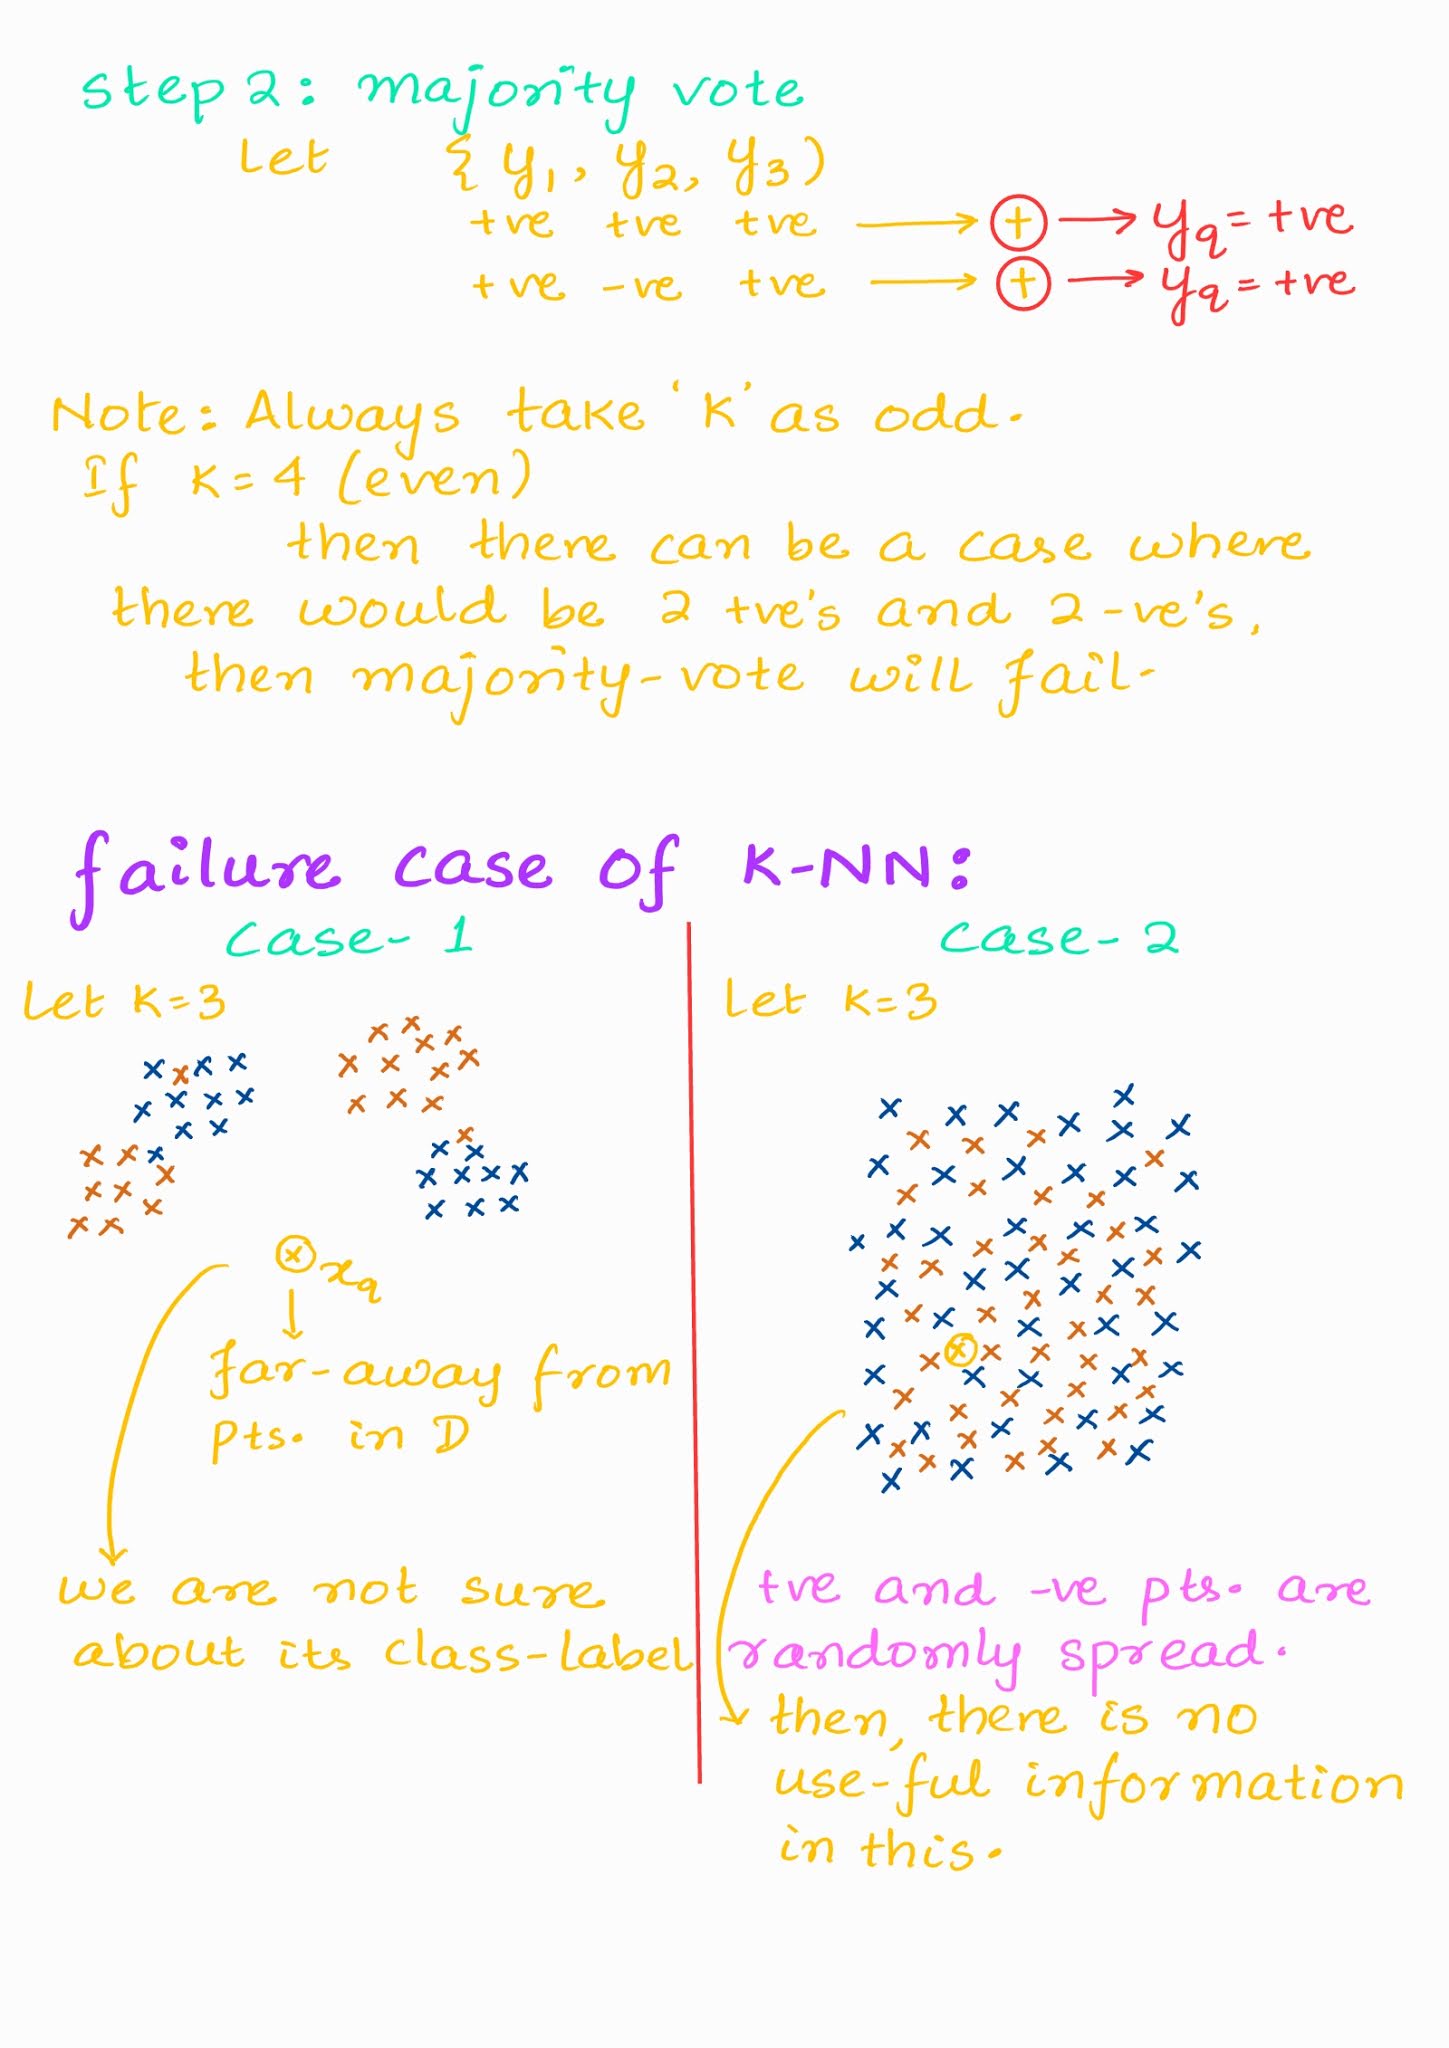 step 2: majority vote
Let { y₁, y₂, y₃ )
+ve +ve +ve ⟶ ⊕ ⟶ y_q = +ve
+ve -ve +ve ⟶ ⊕ ⟶ y_q = +ve
Note: Always take 'K' as odd.
If K = 4 (even)
then there can be a case where
there would be 2 +ve's and 2 -ve's,
then majority-vote will fail.
failure case of K-NN:
Case- 1
Let K=3
x_q
far-away from
pts. in D
we are not sure
about its class-label
Case- 2
Let K=3
+ve and -ve pts. are
randomly spread.
then, there is no
use-ful information
in this.